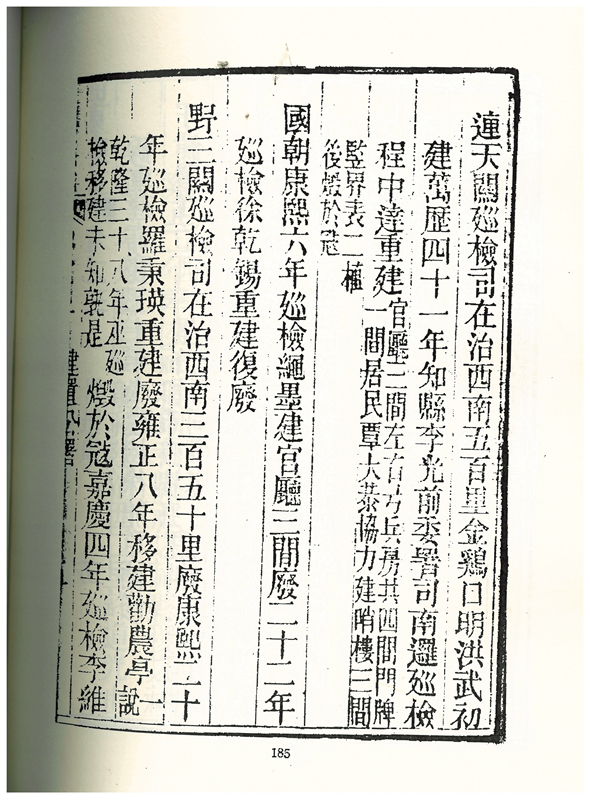 連天關巡檢司在治西南五百里金鷄口明洪武初
建萬歷四十一年知縣李光前委署司南邏巡檢
程中達重建官廳三間左右弓兵房共四間門牌
一間居民覃大泰協力建哨樓三間
豎界表二
後燬於寇
國朝康熙六年巡檢繩墨建官廳三間廢二十二年
巡檢徐乾錫重建復廢
野三關巡檢司在治西南三百五十里廢康熙二十
年巡檢羅秉瑛重建廢雍正八年移建勸農亭一說
乾隆三十八年巫巡
檢移建未知孰是
燬於寇嘉慶四年巡檢李維
建置
185